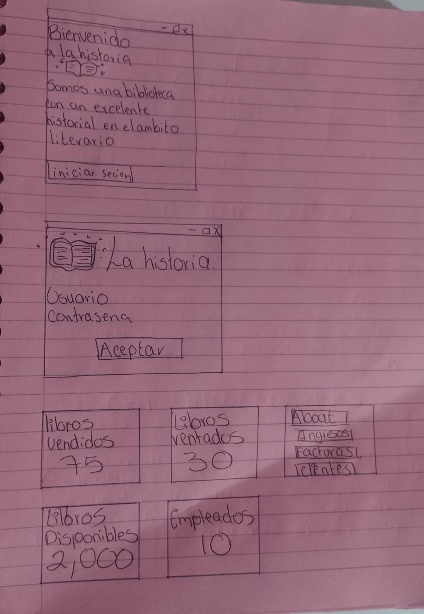 Bienvenido
a la historia
Somos una biblioteca
con un excelente
historial en el ambito
literario
iniciar secion
La historia
Usuario
Contrasena
Aceptar
libros
vendidos
75
Libros
rentados
30
About
Angresos
Facturas
clientes
Libros
Disponibles
2,000
Empleados
10